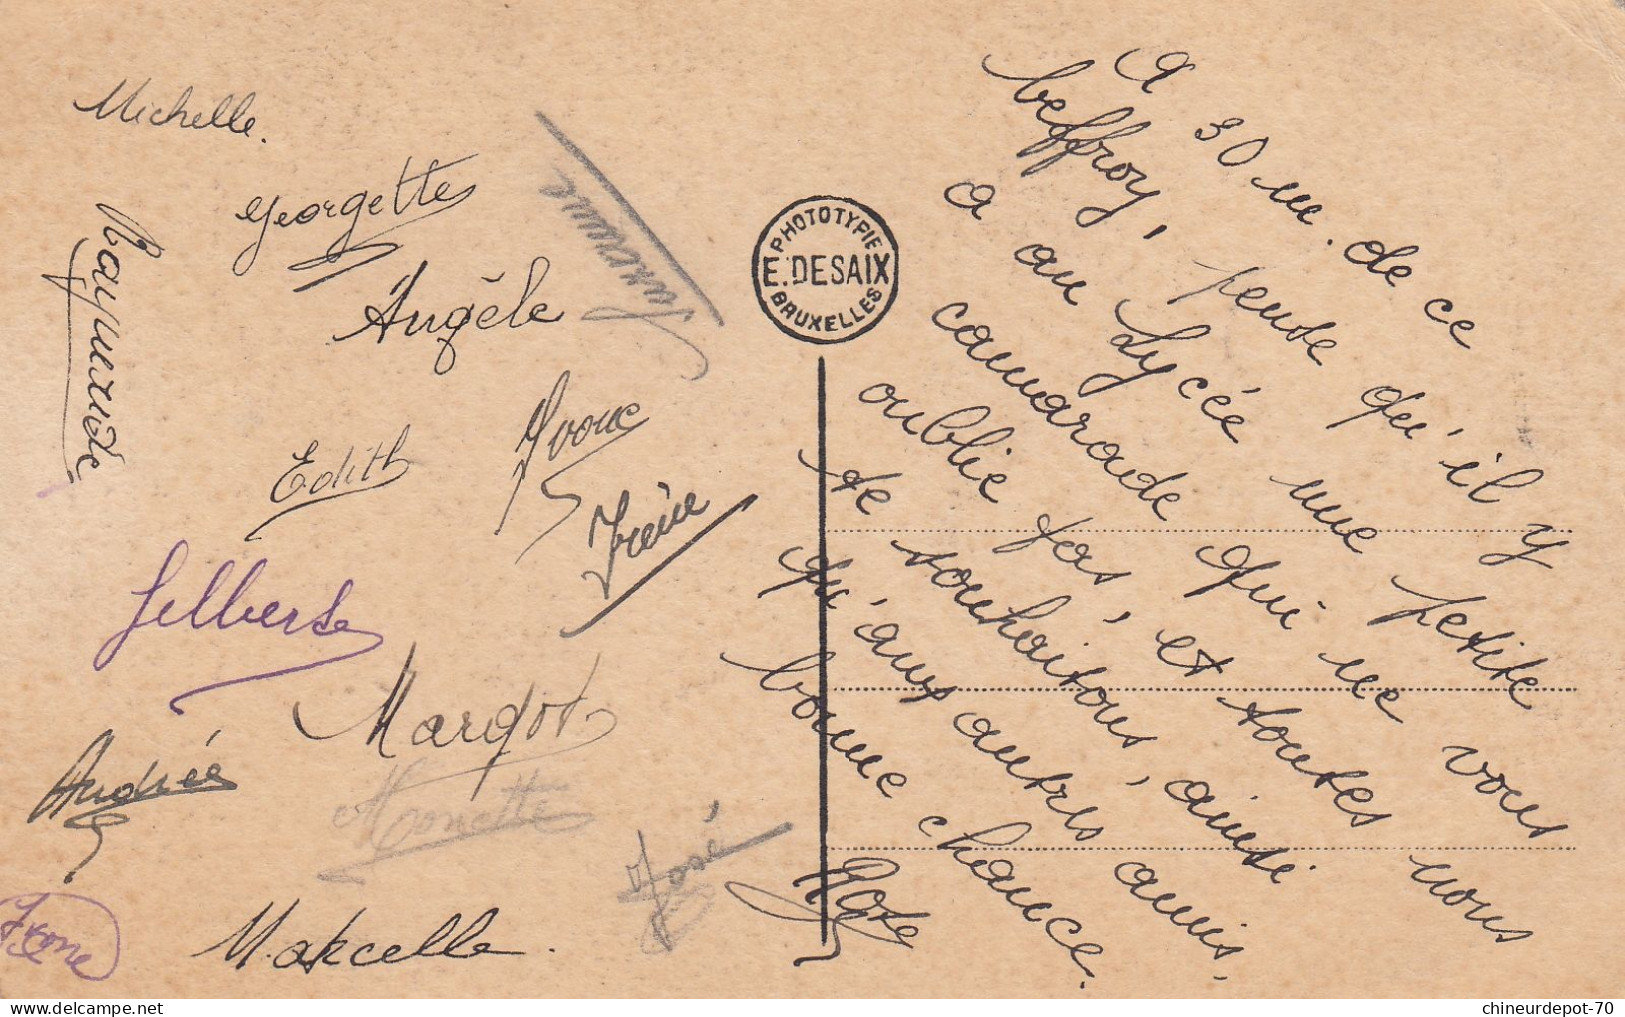 Michelle.
Georgette
Raymonde
Angèle
Edith
Yvone
Irène
Gilberte
Margot
Andrée
Monette
José
Yvone
Marcelle.
PHOTOTYPIE
E. DESAIX
BRUXELLES
A 30 m. de ce
beffroy, pense qu'il y
a au Lycée une petite
camarade qui ne vous
oublie pas, et toutes nous
te souhaitons, ainsi
qu'aux autres amis.
bonne chance.
chineurdepot-70